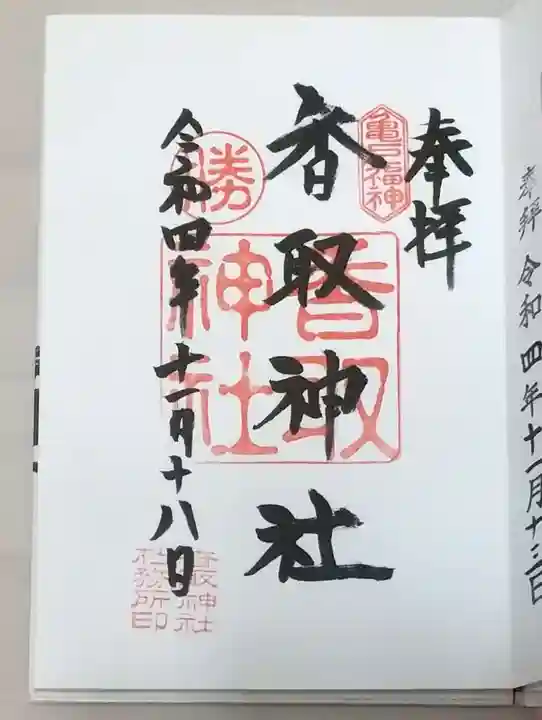 奉拝
亀戸福神
香取神社
香取神社
勝
令和四年十一月十八日
香取神社
社務所印
奉拝 令和四年十一月十三日